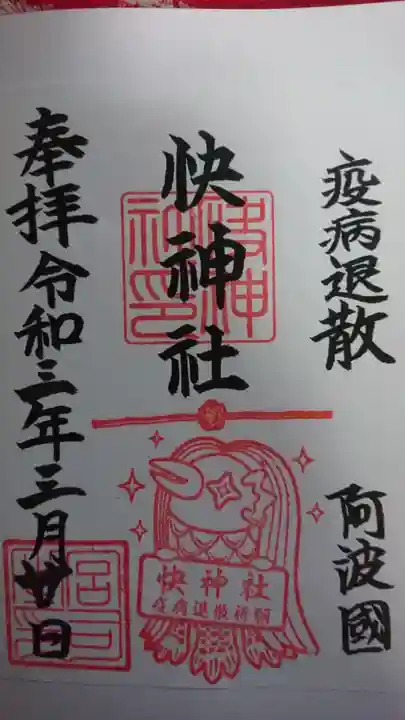 疫病退散
阿波國
快神社
快神社
疫病退散祈願
奉拝令和三年三月廿日